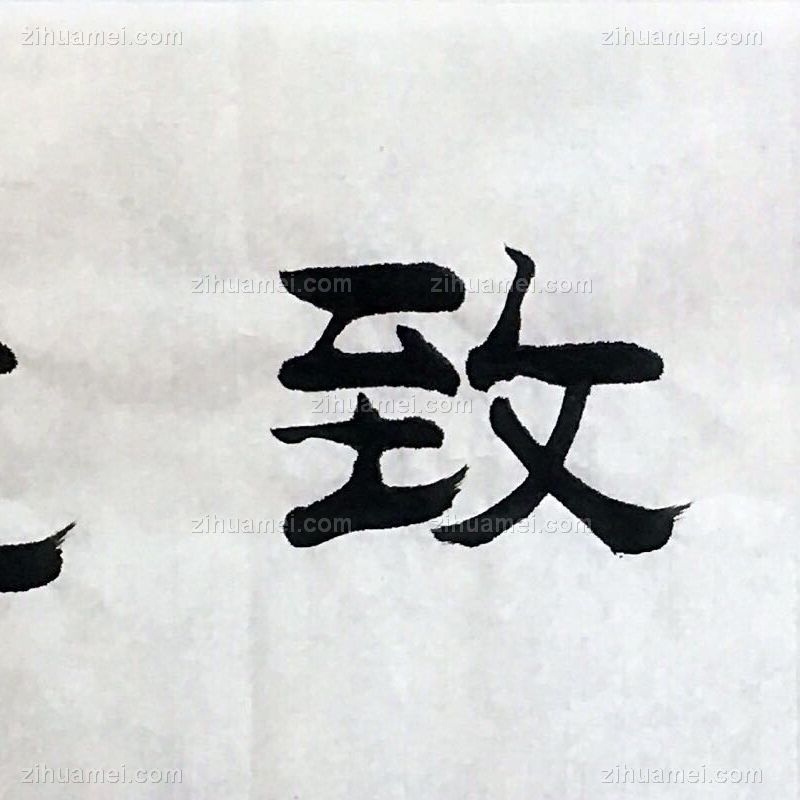 zihuamei.com zihuamei.com
zihuamei.com zihuamei.com
致
zihuamei.com
zihuamei.com zihuamei.com
zihuamei.com zihuamei.com